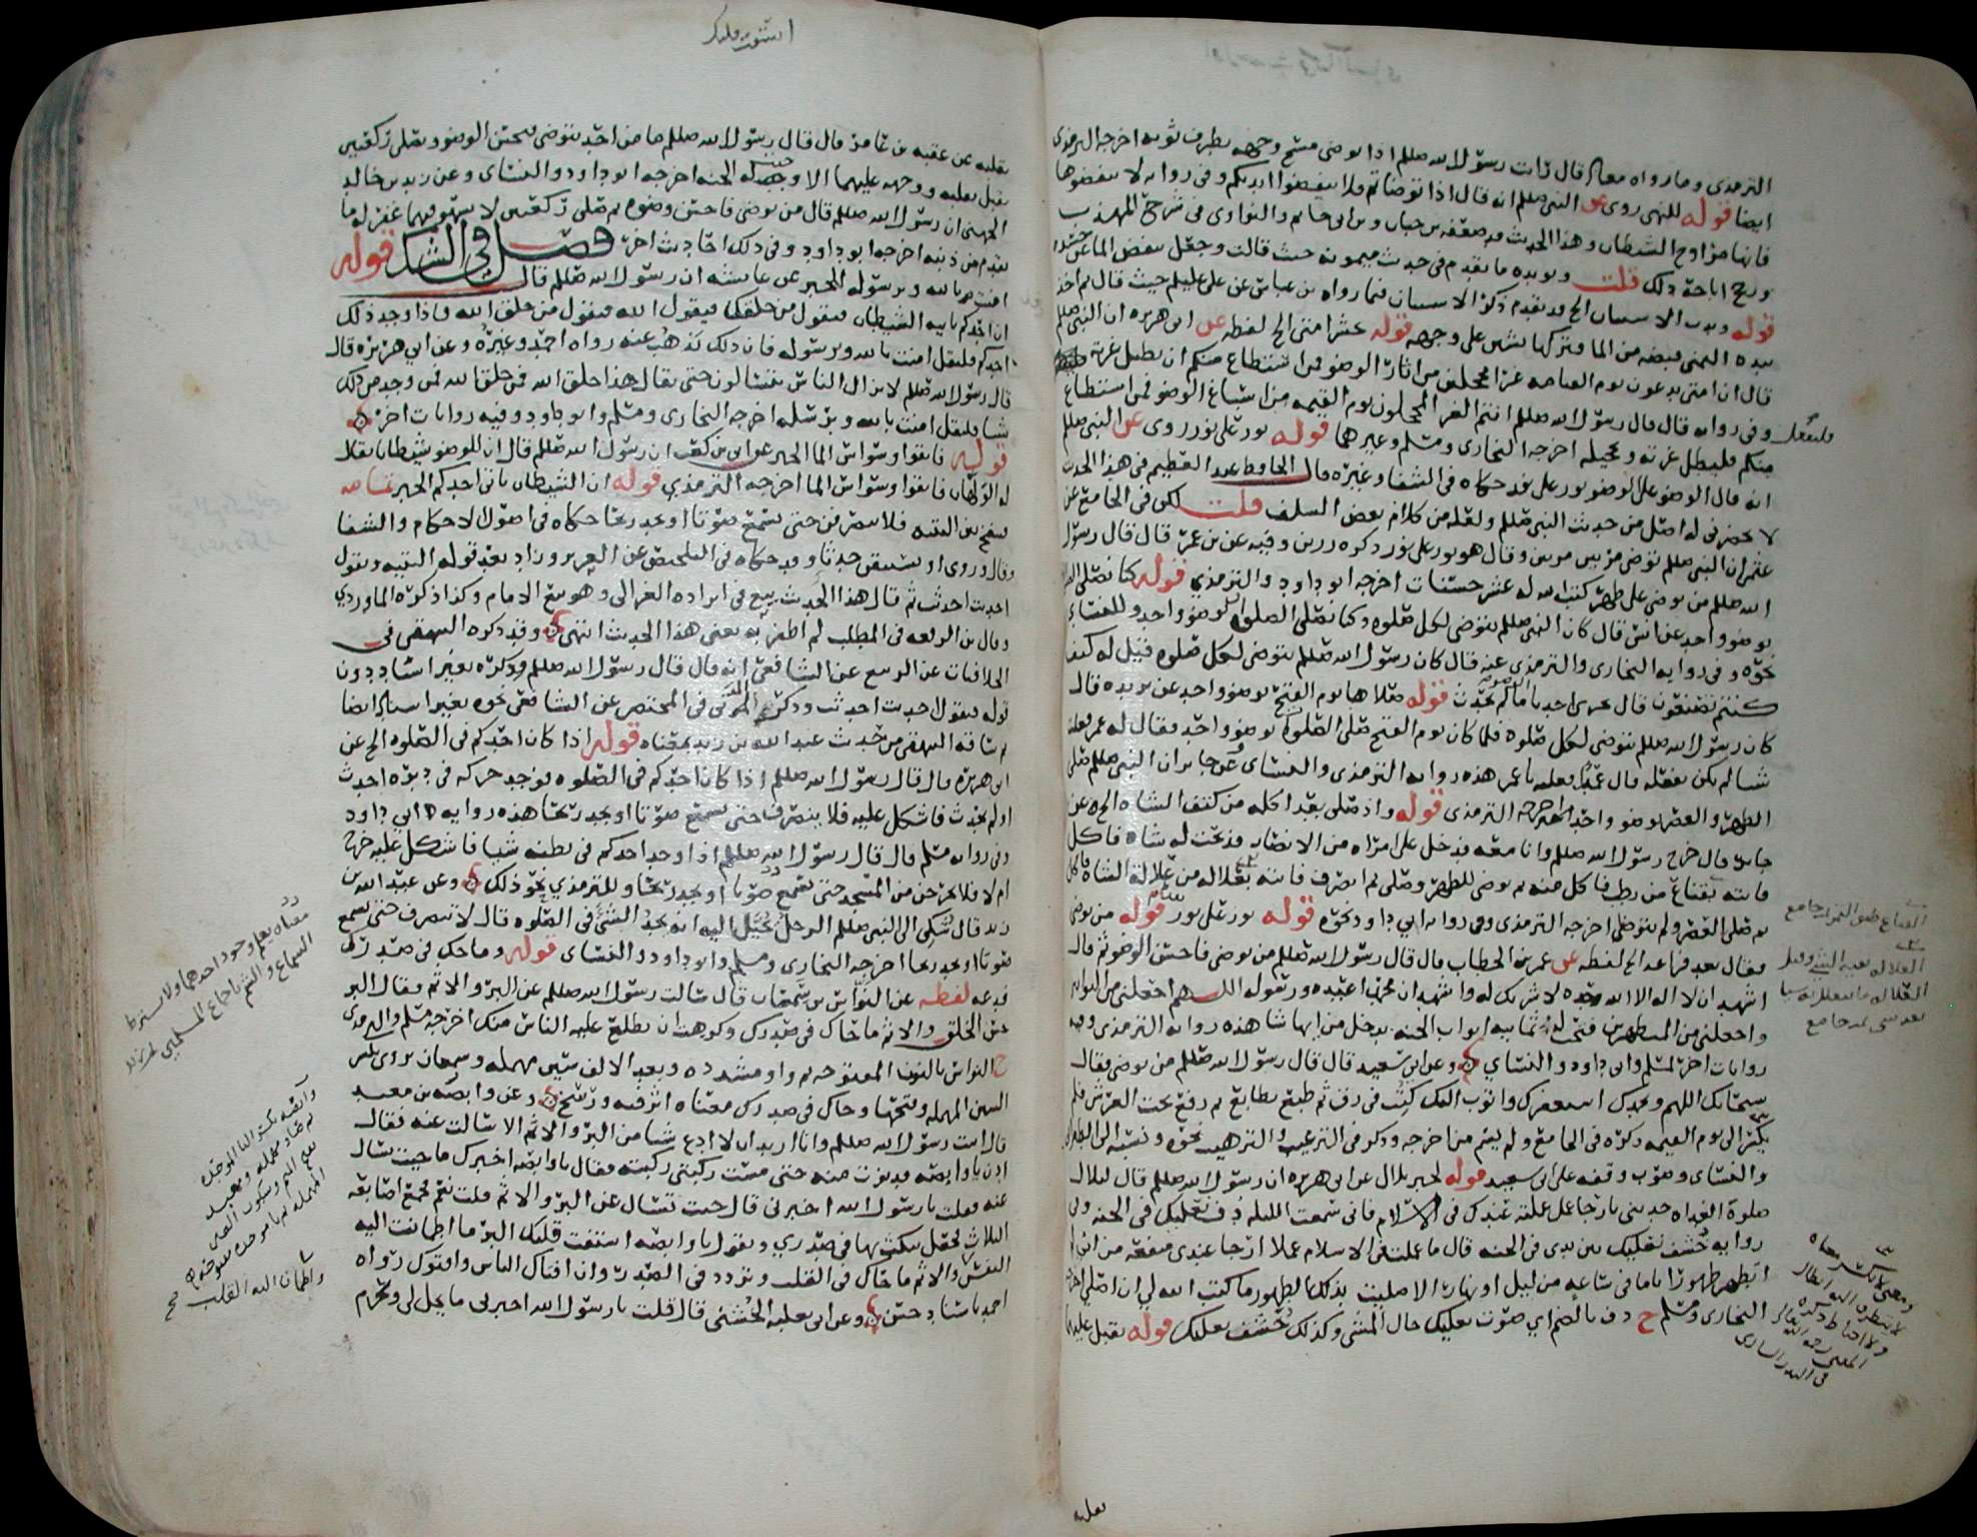 الترمذي وما رواه معاذ قال رأيت رسول الله صللم اذا توضى مسح وجهه بطرف ثوبه اخرجه الترمذي
ايضا قوله للنهي روي عن النبي صللم انه قال اذا توضأتم فلا تنفضوا ايديكم وفي رواية لا تنفضوها
فانها مراوح الشيطان وهذا الحديث قد ضعفه بن حبان وبن ابي حاتم والنواوي في شرح المهذب
ورجح اباحة ذلك قلت ويويده ما تقدم في حديث ميمونة حيث قالت وجعل ينفض الماء عن جسده
قوله وندب الاستنان الخ قد تقدم ذكر الاستنان فيما رواه بن عباس عن علي عليلم حيث قال ثم اخذ
بيده اليمنى قبضه من الما فتركها تشن على وجهه قوله عشر امتي الخ لفظه عن ابي هريره ان النبي صللم
قال ان امتي يدعون يوم القيامه غرا محجلين من اثار الوضو فمن استطاع منكم ان يطيل غرته
فليفعل وفي رواية قال قال رسول الله صللم انتم الغر المحجلون يوم القيمه من اسباغ الوضو فمن استطاع
منكم فليطل غرته وتحجيله اخرجه البخاري ومسلم وغيرهما قوله نور على نور روي عن النبي صللم
انه قال الوضو على الوضو نور على نور حكاه في الشفا وغيره قال الحافظ عبد العظيم في هذا الحديث
لا يحضرني له اصل من حديث النبي صللم ولعله من كلام بعض السلف قلت لكن في الجامع عن
عثمن ان النبي صللم توضى مرتين مرتين وقال هو نور على نور ذكره رزين وفيه عن بن عمر قال قال رسول
الله صللم من توضى على طهر كتب الله له عشر حسنات اخرجه ابو داود والترمذي قوله كنا نصلي
بوضوء واحد عن انس قال كان النبي صللم يتوضى لكل صلوه وكنا نصلي الصلوات بوضو واحد وللنسائي
نحوه وفي رواية البخاري والترمذي عنه قال كان رسول الله صللم يتوضى لكل صلوه قيل له كيف
كنتم تصنعون قال يجزي احدنا الوضوء ما لم يحدث قوله صلاها يوم الفتح بوضو واحد عن بريده قال
كان رسول الله صللم يتوضى لكل صلوه فلما كان يوم الفتح صلى الصلوة بوضو واحد فقال له عمر فعلت
شيا لم تكن تفعله قال عمدا فعلته يا عمر هذه رواية الترمذي والنسائي وعن جابر ان النبي صللم صلى
الظهر والعصر بوضو واحد اخرجه الترمذي قوله واذ صلى بعد اكله من كتف الشاه الخ عن
جابر قال خرج رسول الله صللم وانا معه فدخل على امراه من الانصار فذبحت له شاه فاكل
فاتته بقناع من رطب فاكل منه ثم توضى للظهر وصلى ثم انصرف فاتته بعلاله من علالة الشاه فاكل
ثم صلى العصر ولم يتوضى اخرجه الترمذي وفي رواية ابي داود نحوه قوله نور على نور قوله من توضى
وقال بعد فراغه الخ لفظه عن عمر بن الخطاب قال قال رسول الله صللم من توضى فاحسن الوضو ثم قال
اشهد ان لا اله الا الله وحده لا شريك له واشهد ان محمدا عبده ورسوله اللهم اجعلني من التوابين
واجعلني من المتطهرين فتحت له ثمانية ابواب الجنه يدخل من ايها شا هذه رواية الترمذي وفيه
روايات اخر لمسلم وابي داود والنسائي وعن ابي سعيد قال قال رسول الله صللم من توضى فقال
سبحانك اللهم وبحمدك استغفرك واتوب اليك كتب في رق ثم طبع بطابع ثم رفع تحت العرش فلم
يكسر الى يوم القيمه ذكره في الجامع ولم يسم من اخرجه وذكر في الترغيب والترهيب نحوه ونسبه الى الطبراني
والنسائي وصوب وقفه على ابي سعيد قوله لخبر بلال عن ابي هريره ان رسول الله صللم قال لبلال
صلوة الغداه حدثني بارجا عمل عملته عندك في الاسلام فاني سمعت الليله دف نعليك في الجنه وفي
رواية خشف نعليك بين يدي في الجنه قال ما عملت في الاسلام عملا ارجا عندي منفعه من اني لم
اتطهر طهورا تاما في ساعه من ليل او نهار الا صليت بذلك الطهور ما كتب الله لي ان اصلي اخرجه
البخاري ومسلم ح دف بالضم اي صوت نعليك حال المشي وكذلك خشف نعليك قوله يقبل عليهما
القناع طبق التمر جامع
العلاله بقية الشي وقيل
العلاله ما يتعلل به شيا
بعد شي تمت جامع
في البدر الساري
استفت قلبك
بقلبه عن عقبه بن عامر قال قال رسول الله صللم ما من احد يتوضى فيحسن الوضو ويصلي ركعتين
يقبل بقلبه ووجهه عليهما الا وجبت له الجنه اخرجه ابو داود والنسائي وعن زيد بن خالد
الجهني ان رسول الله صللم قال من توضى فاحسن وضوه ثم صلى ركعتين لا يسهو فيهما غفر له ما
تقدم من ذنبه اخرجه ابو داود وفي ذلك احاديث اخر فصل في الشك قوله
امنت بالله وبرسوله الخبر عن عايشه ان رسول الله صللم قال
ان احدكم ياتيه الشيطان فيقول من خلقك فيقول الله فيقول من خلق الله فاذا وجد ذلك
احدكم فليقل امنت بالله وبرسوله فان ذلك يذهب عنه رواه احمد وغيره وعن ابي هريره قال
قال رسول الله صللم لا يزال الناس يتسالون حتى يقال هذا خلق الله فمن خلق الله فمن وجد من ذلك
شيا فليقل امنت بالله وبرسله اخرجه البخاري ومسلم وابو داود وفيه روايات اخر
قوله فاتقوا وسواس الما الخبر عن ابي بن كعب ان رسول الله صللم قال ان للوضو شيطانا يقال
له الولهان فاتقوا وسواس الما اخرجه الترمذي قوله ان الشيطان ياتي احدكم الخبر تمامه
فينفخ بين اليتيه فلا ينصرفن حتى يسمع صوتا او يجد ريحا حكاه في اصول الاحكام والشفا
وقال وروي او يستيقن حدثا وقد حكاه في التلخيص عن العزيز وزاد بعد قوله اليتيه ويقول
احدثت احدثت ثم قال هذا الحديث تبع في ايراده الغزالي وهو تبع الامام وكذا ذكره الماوردي
وقال بن الرفعه في المطلب لم اظفر به يعني هذا الحديث انتهى وقد ذكره البيهقي في
الخلافيات عن الربيع عن الشافعي انه قال قال رسول الله صللم وذكره بغير اسناد دون
قوله فيقول احدثت احدثت وذكره المزني في المختصر عن الشافعي نحوه بغير اسناد ايضا
ثم ساقه البيهقي من حديث عبد الله بن زيد بمعناه قوله اذا كان احدكم في الصلوه الخ عن
ابي هريره قال قال رسول الله صللم اذا كان احدكم في الصلوه فوجد حركه في دبره احدث
او لم يحدث فاشكل عليه فلا ينصرف حتى يسمع صوتا او يجد ريحا هذه رواية ابي داود
وفي رواية مسلم قال قال رسول الله صللم اذا وجد احدكم في بطنه شيا فاشكل عليه خرج
ام لا فلا يخرجن من المسجد حتى يسمع صوتا او يجد ريحا وللترمذي نحو ذلك وعن عبد الله بن
زيد قال شكي الى النبي صللم الرجل يخيل اليه انه يجد الشي في الصلوه قال لا ينصرف حتى يسمع
صوتا او يجد ريحا اخرجه البخاري ومسلم وابو داود والنسائي قوله وما حك في صدرك
فدعه لفظه عن النواس بن سمعان قال سالت رسول الله صللم عن البر والاثم فقال البر
حسن الخلق والاثم ما حاك في صدرك وكرهت ان يطلع عليه الناس منك اخرجه مسلم والترمذي
ح النواس بالنون المفتوحه وواو مشدده وبعد الالف سين مهمله وسمعان يروى بكسر
السين المهمله وفتحها وحاك في صدرك معناه اثر فيه ورسخ وعن وابصه بن معبد
قال اتيت رسول الله صللم وانا اريد ان لا ادع شيا من البر والاثم الا سالت عنه فقال
ادن يا وابصه فدنوت منه حتى مست ركبتي ركبته فقال يا وابصه اخبرك ما جيت تسال
عنه فقلت يا رسول الله اخبرني قال جيت تسال عن البر والاثم قلت نعم فجمع اصابعه
الثلاث فجعل ينكت بها في صدري ويقول يا وابصه استفت قلبك البر ما اطمانت اليه
النفس والاثم ما حاك في القلب وتردد في الصدر وان افتاك الناس وافتوك رواه
احمد باسناد حسن وعن ابي ثعلبه الخشني قال قلت يا رسول الله اخبرني ما يحل لي ويحرم
معناه يعلم وجود احدهما ولا يشترط
السماع والشم باجماع المسلمين
وابصه بكسر البا الموحده
ثم صاد مهمله ومعبد
بفتح الميم وسكون العين
المهمله ثم با موحده مفتوحه
واطمان اليه القلب صح